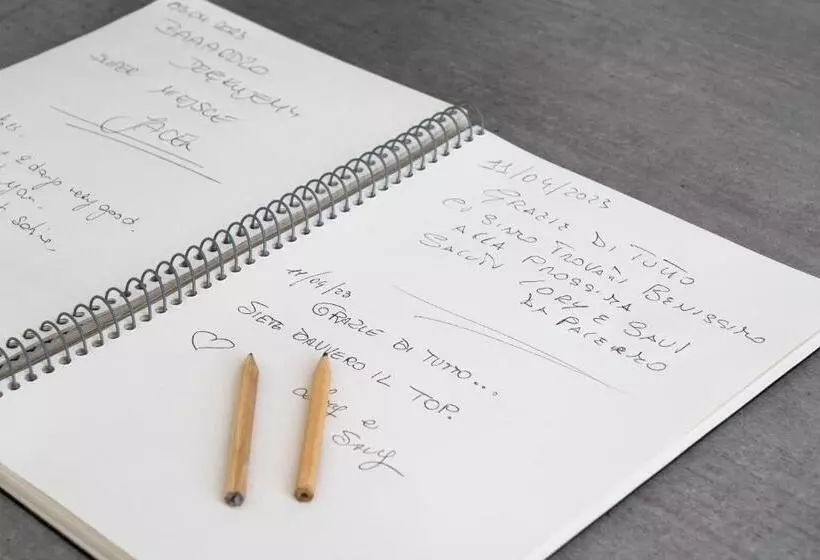 2023
BAAARDZO
DZIĘKUJEMY
SUPER MIEJSCE
JACEK
very good.
11/04/2023
GRAZIE DI TUTTO
CI SIAMO TROVATI BENISSIMO
ALLA PROSSIMA
SALUTI JORY E SAVI
DA PALERMO
11/04/23
GRAZIE DI TUTTO...
SIETE DAVVERO IL TOP.
e
Savy